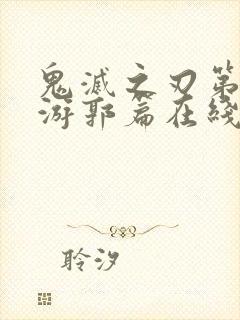 鬼滅之刃第
游郭篇在綫
聆汐